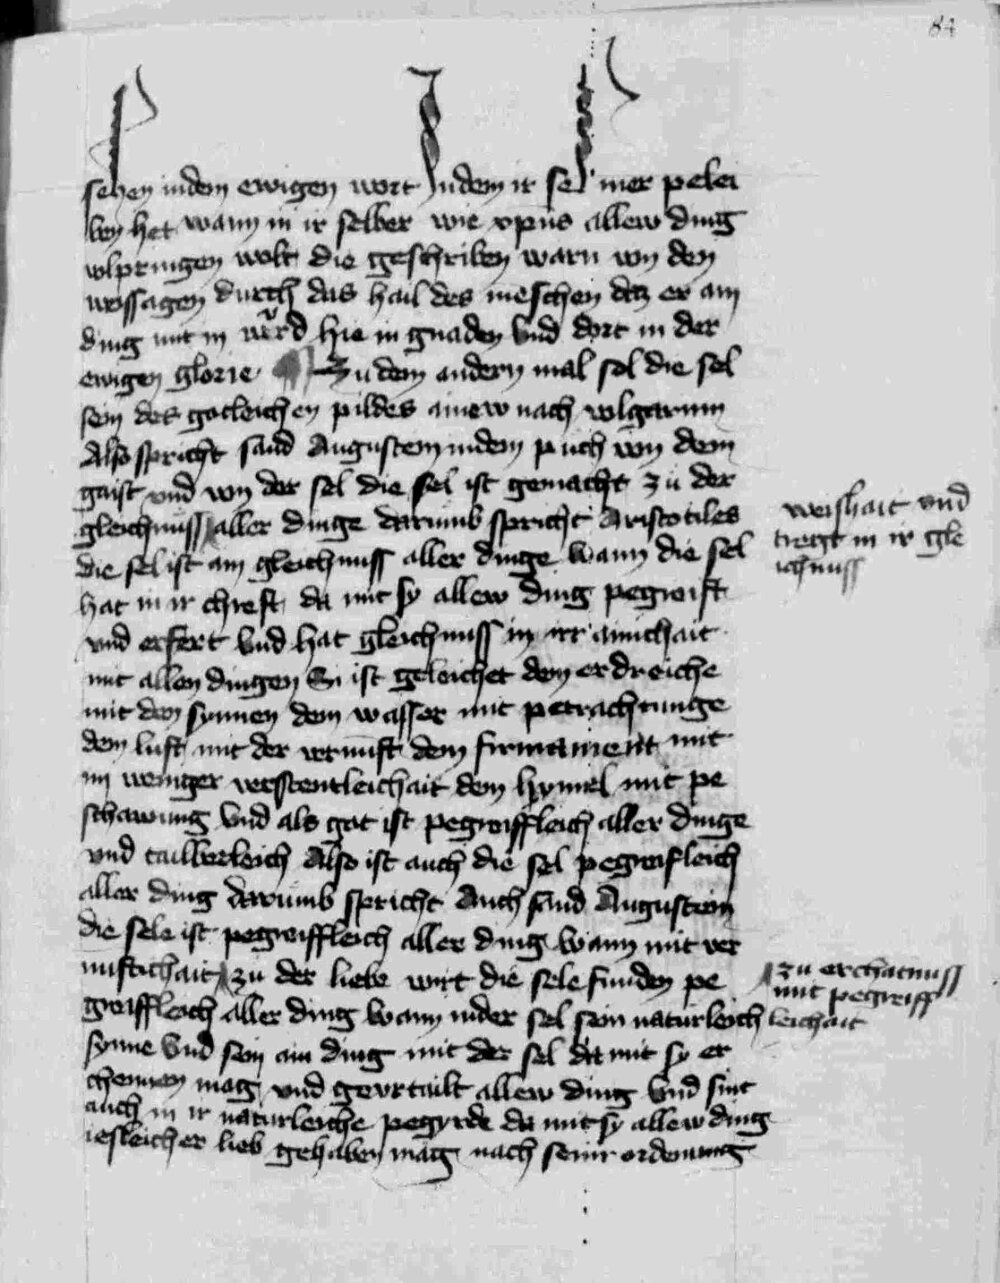 84
sehen indem ewigen wort Indem ir sel mer pelei
ben het wann in ir selber wie xpus allew ding
volpringen wolt die geschriben warn von den
weissagen durch das hail des meschen daz er ain
ding mit in würd hie in gnaden vnd dort in der
ewigen glorie Zu dem andern mal sol die sel
sein des gotleichen pildes ainew nach volgarinn
Also spricht sand Augustein indem puch von dem
gaist vnd von der sel die sel ist gemacht zu der
gleichnuss aller dinge darumb spricht Aristotiles
die sel ist ain gleichnuss aller dinge wann die sel
hat in ir chreft da mit sy allew ding pegreift
vnd erfert vnd hat gleichnuss in irr ainichait
mit allen dingen Si ist geleichet dem erdreiche
mit den synnen dem wasser mit petrachtunge
dem luft mit der vernunft dem firmament mit
in weniger verstentleichait dem hymel mit pe
schawung vnd als got ist pegreiffleich aller dinge
vnd tailberleich Also ist auch die sel pegreifleich
aller ding darumb spricht Auch sand Augustein
die sele ist pegreiffleich aller ding wann mit ver
nuftichait zu der liebe wirt die sele funden pe
greiffleich aller ding wann inder sel sein naturleich
synne vnd sein ain ding mit der sel da mit sy er
chennen mag vnd gevrtailt allew ding vnd sint
auch in ir naturleiche pegyrde da mit sy allew ding
iesleicher lieb gehaben mag nach seinr ordenung
weishait vnd
tregt in ir gle
ichnuss
zu erchatnuss
mit pegreiff
leichait